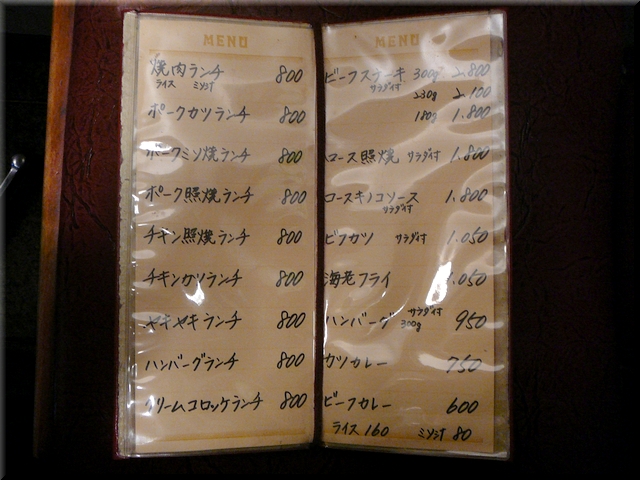 MENU
焼肉ランチ 800
ライス ミソ汁
ポークカツランチ 800
ポークミソ焼ランチ 800
ポーク照焼ランチ 800
チキン照焼ランチ 800
チキンカツランチ 800
ヤキヤキランチ 800
ハンバーグランチ 800
クリームコロッケランチ 800
MENU
ビーフステーキ 300g 2.800
サラダ付 230g 2.100
180g 1.800
ロース照焼 サラダ付 1.800
ロースキノコソース 1.800
サラダ付
ビフカツ サラダ付 1.050
海老フライ 1.050
ハンバーグ サラダ付 300g 950
カツカレー 750
ビーフカレー 600
ライス 160 ミソ汁 80